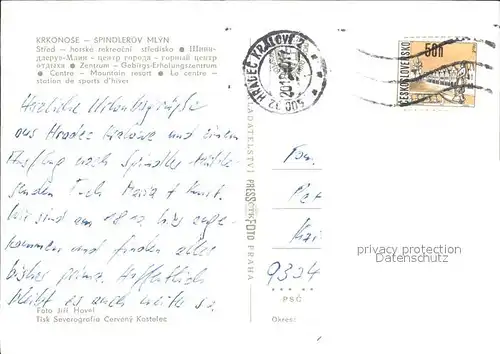 KRKONOŠE – ŠPINDLERŮV MLÝN
Střed – horské rekreační středisko ● Шпин-
длерув-Млин – центр города – горный центр
отдыха ● Zentrum – Gebirgs-Erholungszentrum
● Centre – Mountain resort ● Le centre –
station de sports d'hiver
Herzliche Urlaubsgrüße
aus Hradec Kralove und einem
Ausflug nach Spindler-Mühle
senden Euch Maria + Kurt.
Wir sind am 18.12. hier ange-
kommen und finden alles
bisher prima. Hoffentlich
bleibt es auch weiter so.
Foto Jiří Havel
Tisk Severografia Červený Kostelec
NAKLADATELSTVÍ PRESSFOTO PRAHA
HRADEC KRÁLOVÉ 2
500 02
ČESKOSLOVENSKO
50h
Fam.
9334
PSČ
Okres:
privacy protection
Datenschutz